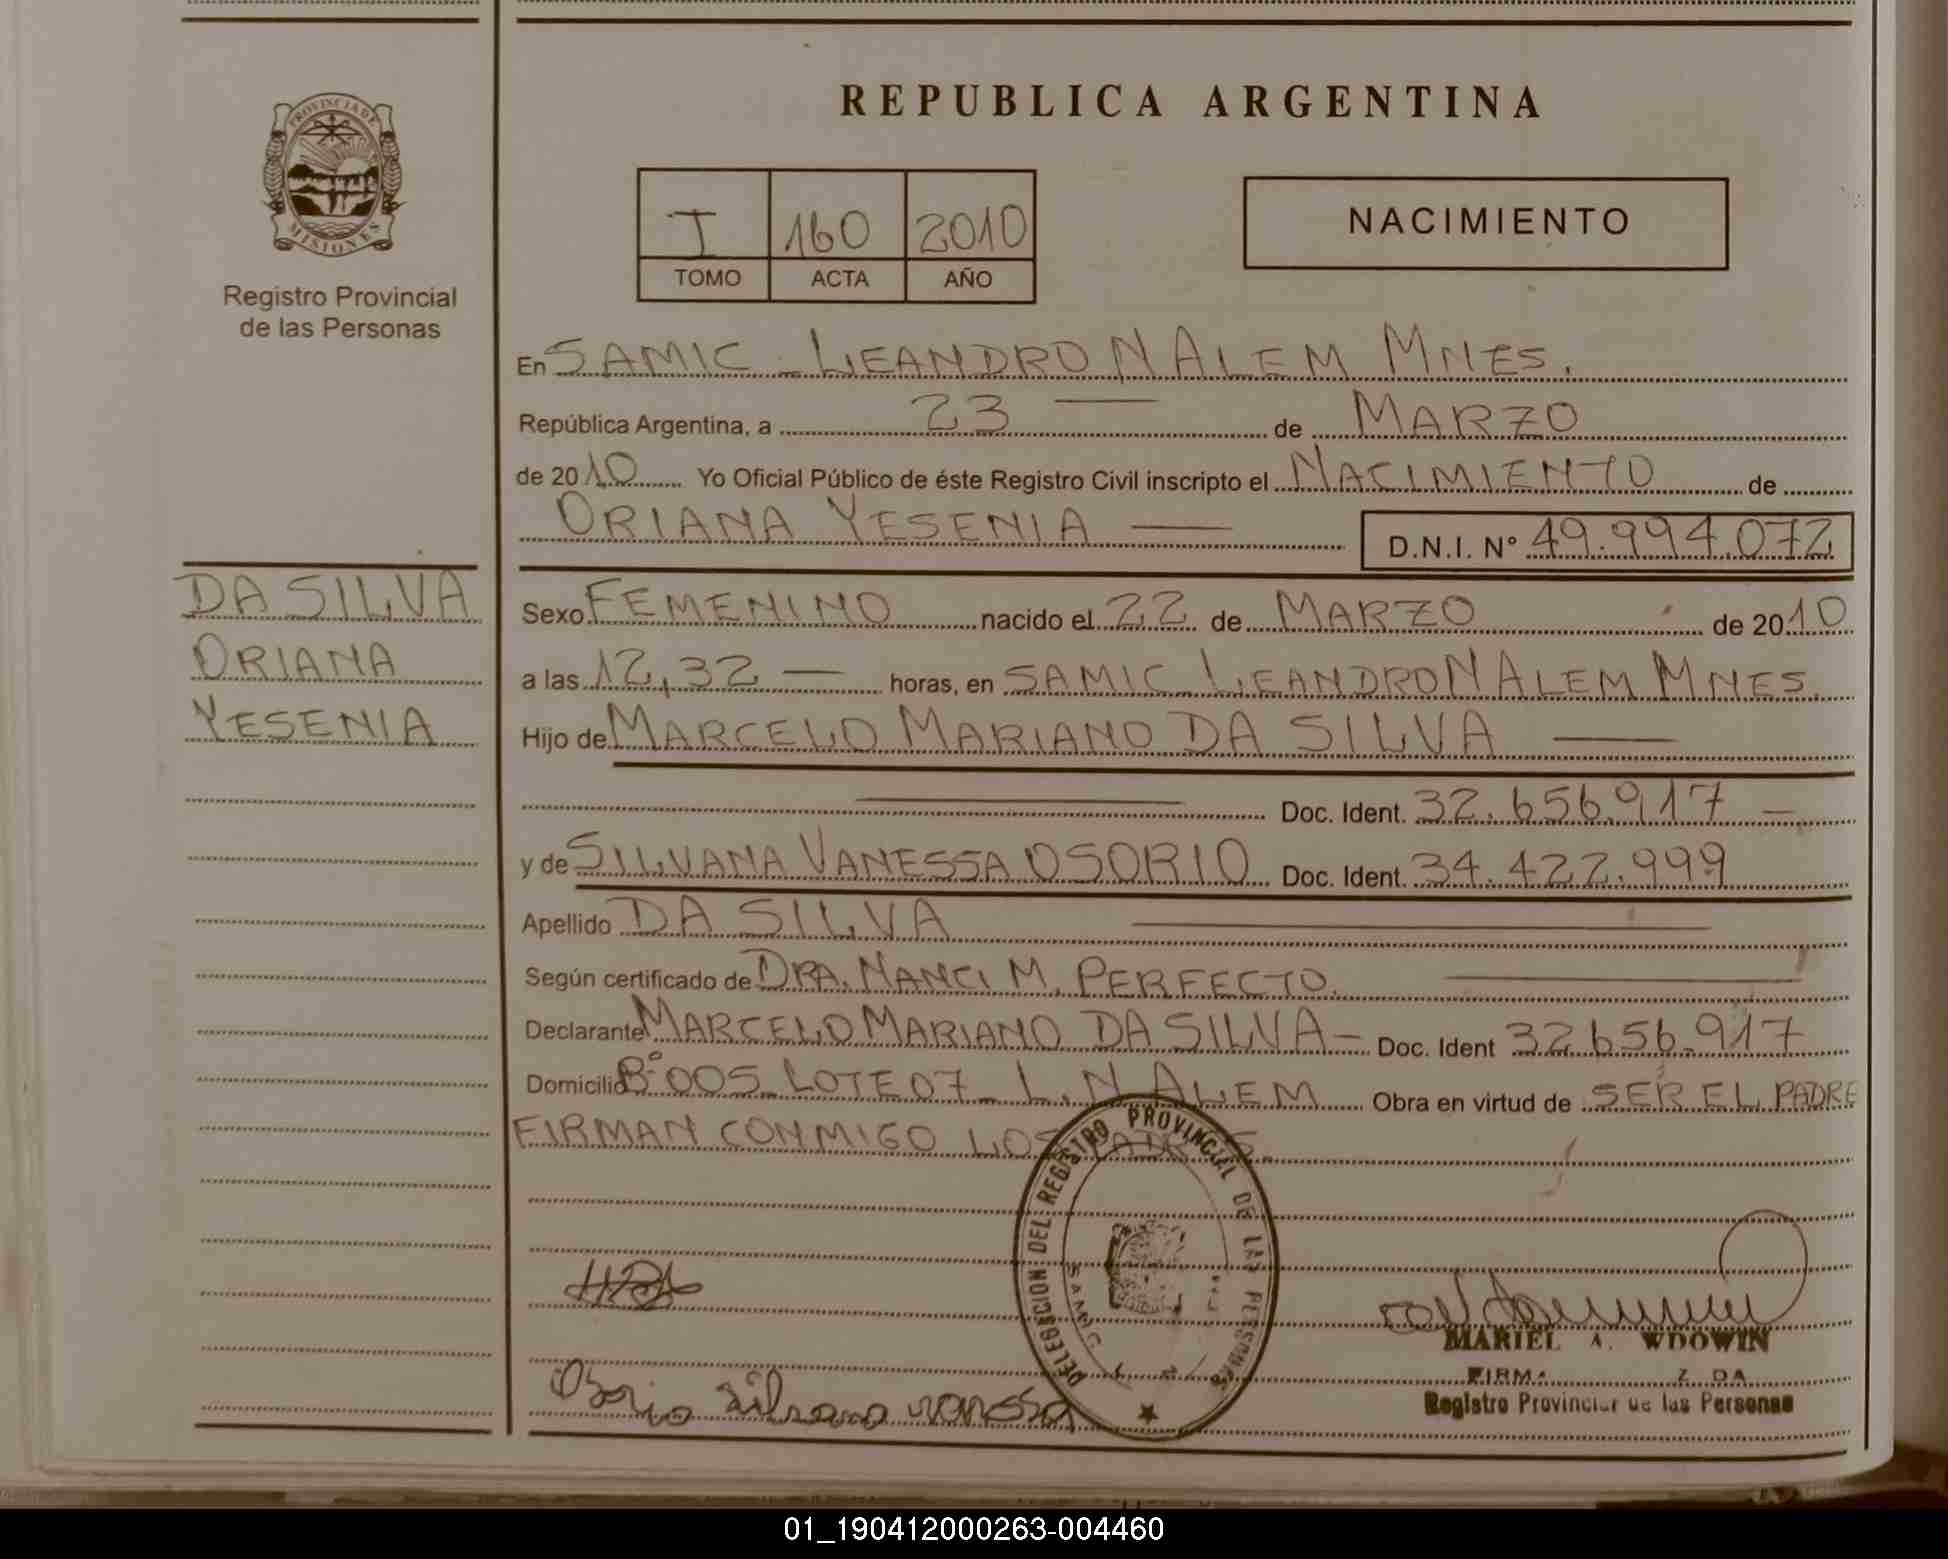 PROVINCIA DE
MISIONES
Registro Provincial
de las Personas
DA SILVA
ORIANA
YESENIA
REPUBLICA ARGENTINA
I 160 2010
TOMO ACTA AÑO
NACIMIENTO
En SAMIC - LEANDRO N ALEM MNES.
República Argentina, a 23 — de MARZO
de 2010 Yo Oficial Público de éste Registro Civil inscripto el NACIMIENTO de
ORIANA YESENIA — D.N.I. N° 49.994.072
Sexo FEMENINO nacido el 22 de MARZO de 2010
a las 12,32 — horas, en SAMIC - LEANDRO N ALEM MNES.
Hijo de MARCELO MARIANO DA SILVA —
— Doc. Ident. 32.656.917 —
y de SILVANA VANESSA OSORIO Doc. Ident. 34.422.999
Apellido DA SILVA —
Según certificado de DRA. NANCI M. PERFECTO. —
Declarante MARCELO MARIANO DA SILVA — Doc. Ident 32.656.917
Domicilio B° 005 - LOTE 07 - L. N ALEM Obra en virtud de SER EL PADRE
FIRMAN CONMIGO LOS PADRES.
DELEGACION DEL REGISTRO PROVINCIAL DE LAS PERSONAS
SAMIC
Osorio Silvana vanessa
MARIEL A. WDOWIN
Registro Provincial de las Personas
01_190412000263-004460